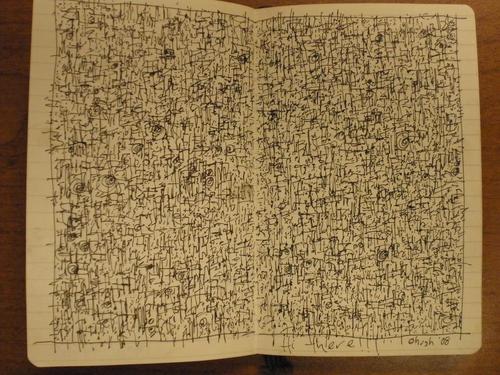 Hi there!! ohrgh '08